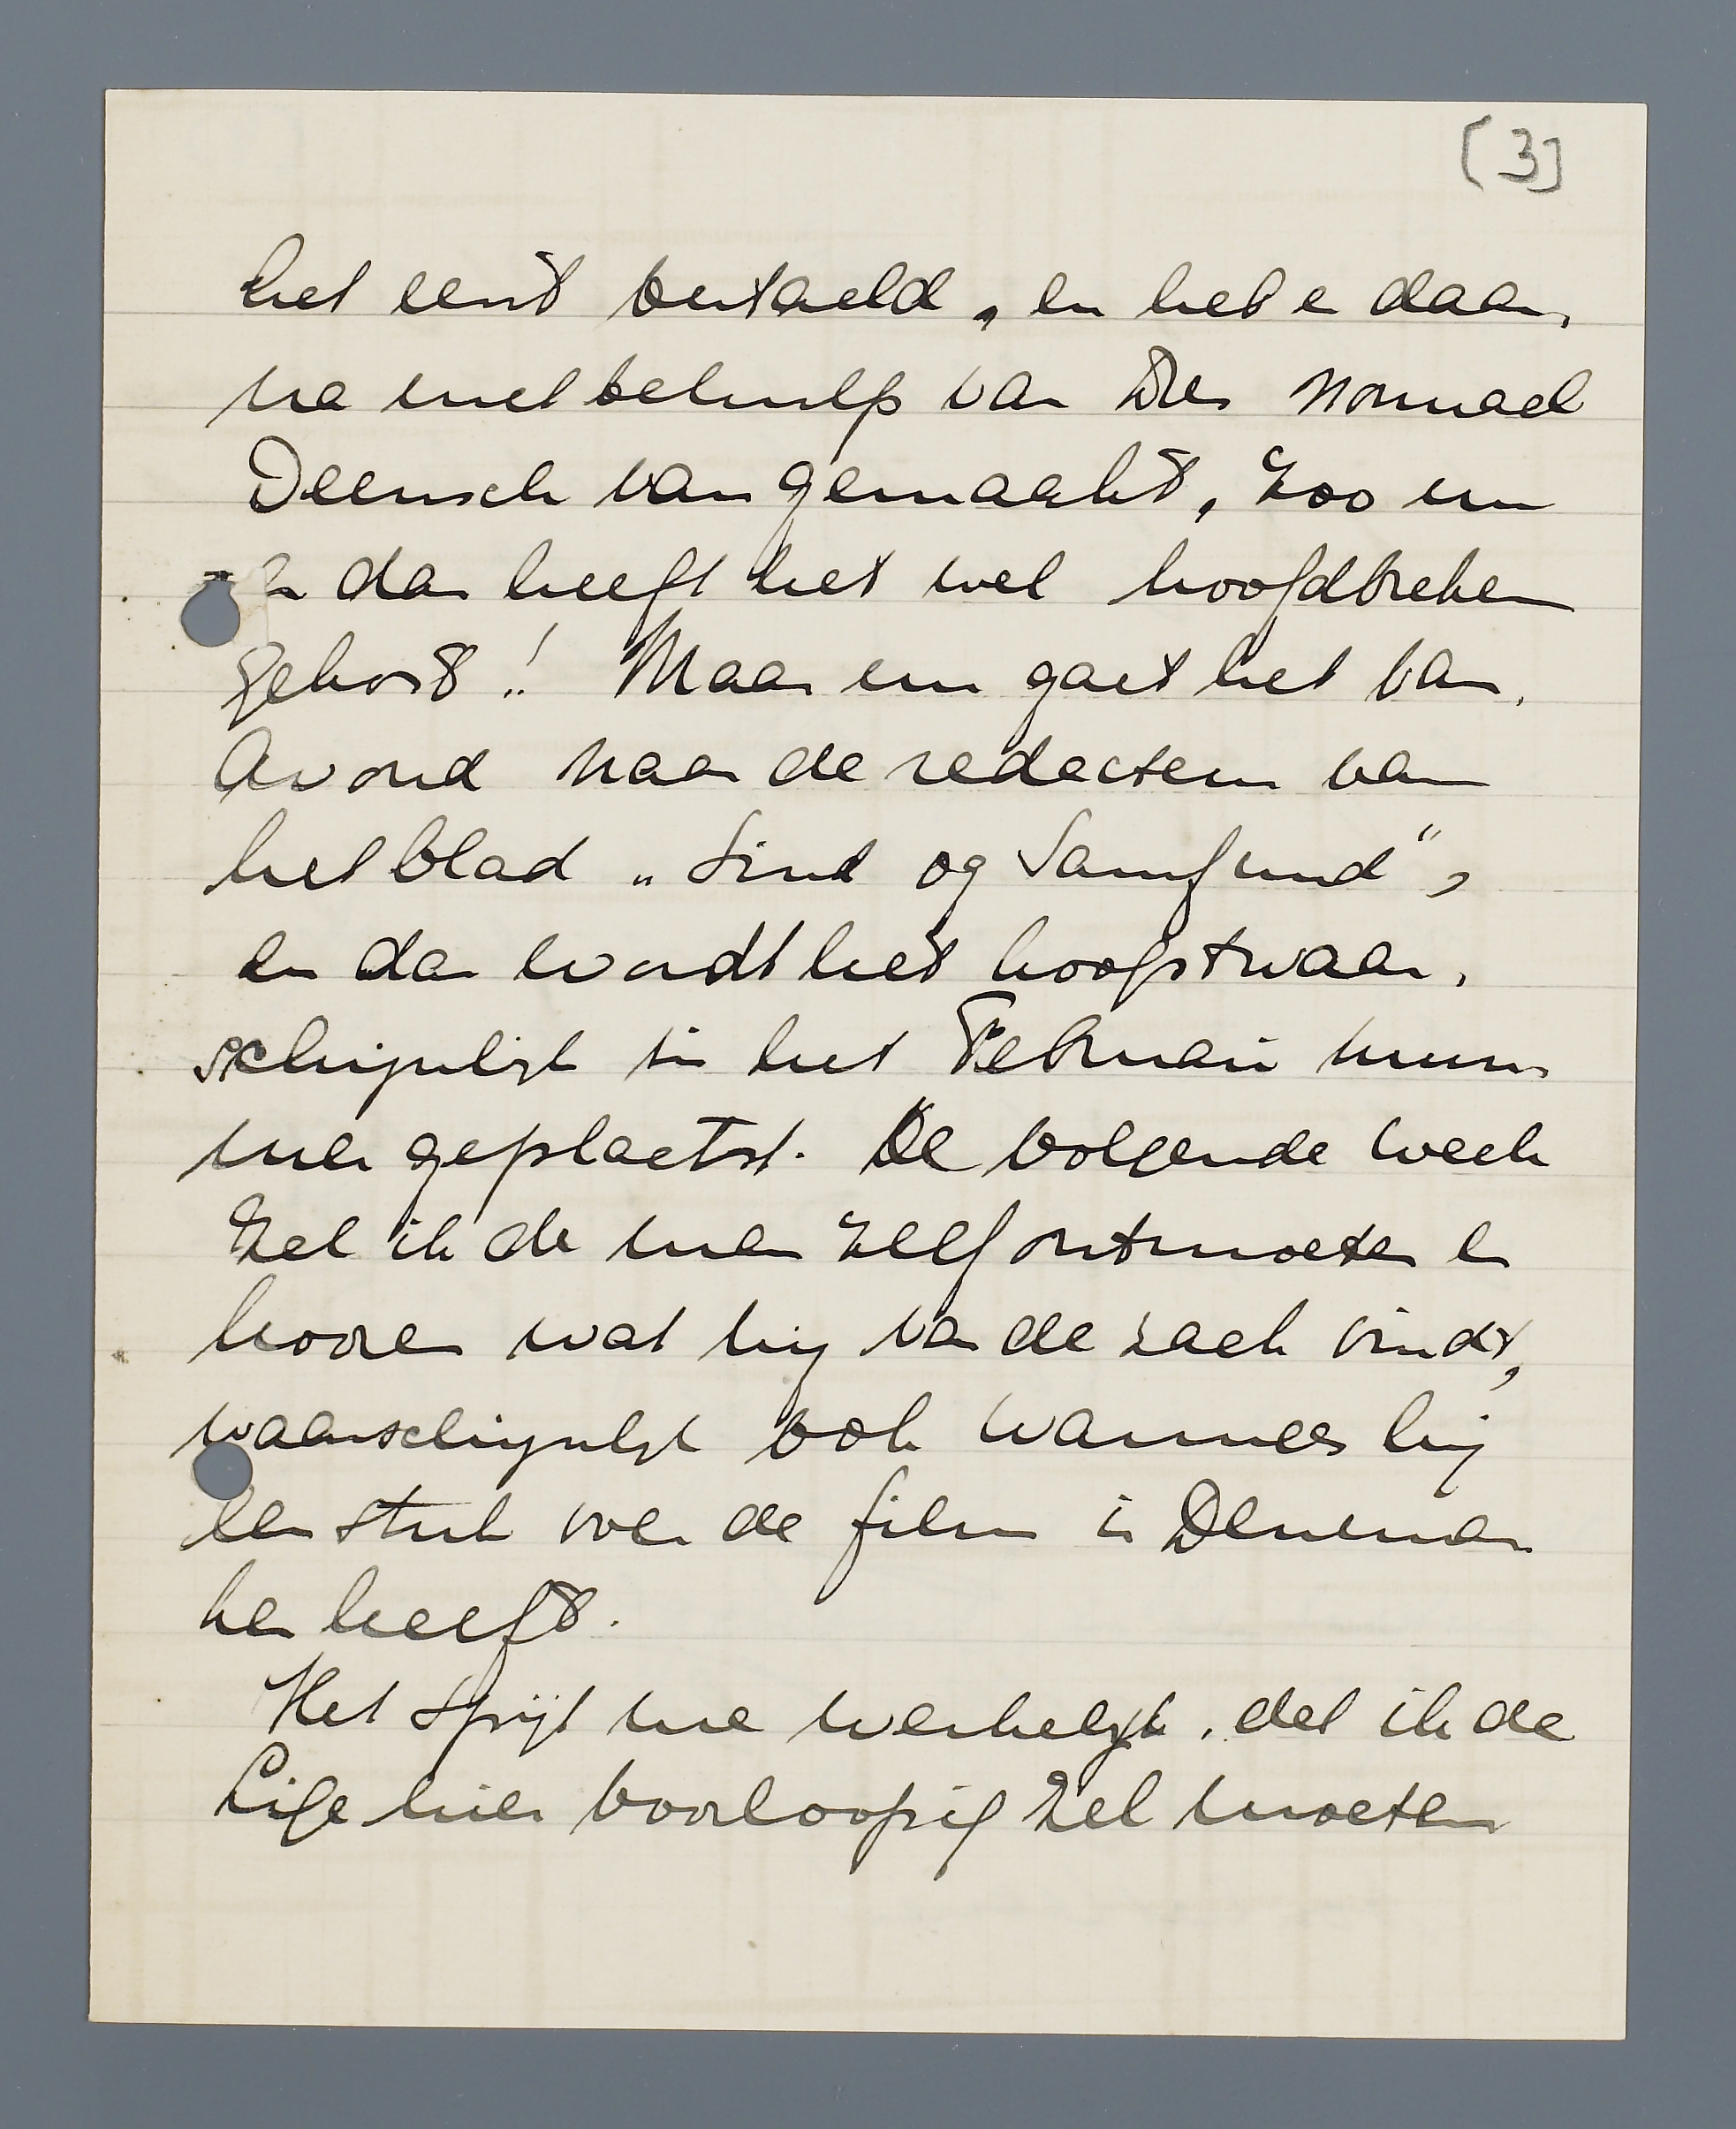 [3]
het eerst vertaeld, en heb er daar,
na met behulp van Dres normael
Deensch van gemaakt, zoo nu
en dan heeft het wel hoofdbreken
gekost..! Maar nu gaet het van,
avond naar de redacteur van
het blad „Sind og Samfund",
en dan wordt het hoogstwaar,
schijnlijk in het Februari num
mer geplaetst. De volgende week
zal ik de man zelf ontmoeten en
hooren wat hij van de zaek vindt,
waarschijnlijk ook wanneer hij
een stuk over de film in Denemar
ken heeft.
Het spijt me werkelijk, dat ik de
Liga hier voorloopig zal moeten